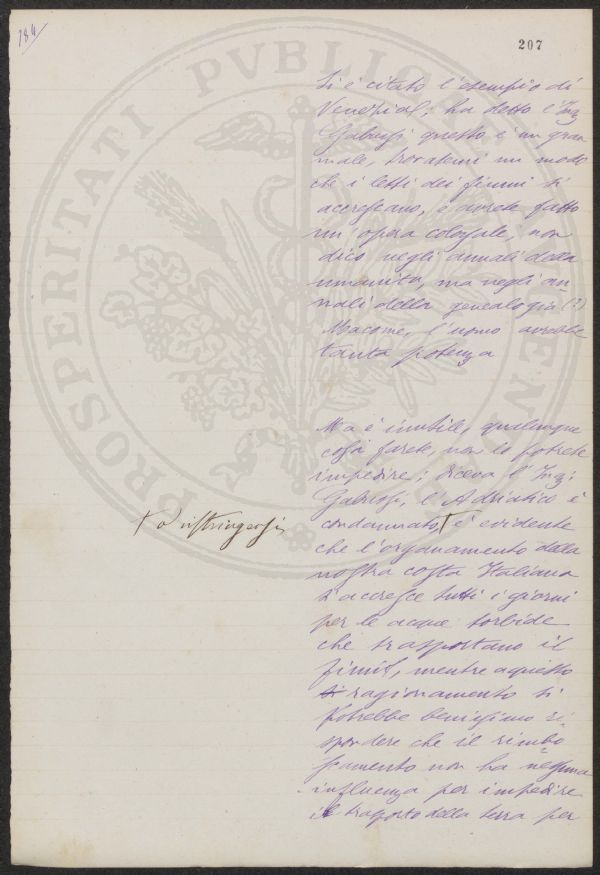 184
207
Si è citato l'esempio di
Venezia, ha detto l'Ing
Gabussi questo è un gran
male, trovatemi un modo
che i letti dei fiumi si
accrescano, e avrete fatto
un'opera colossale, non
dico negli annali della
umanità, ma negli an
nali della genealogia (?)
Macome, l'uomo avrebbe
tanta potenza
Ma è inutile, qualunque
cosa farete, non lo potrete
impedire; diceva l'Ing:
Gabussi, l'Adriatico è
condannato, è evidente
a ristringersi
che l'organamento della
nostra costa Italiana
s'accresce tutti i giorni
per le acque torbide
che trasportano il
mentre a questo
ragionamento si
potrebbe benissimo ri
spondere che il rimbo
scamento non ha nessuna
influenza per impedire
il trasporto della terra per
PROSPERITATI PVBLICAE